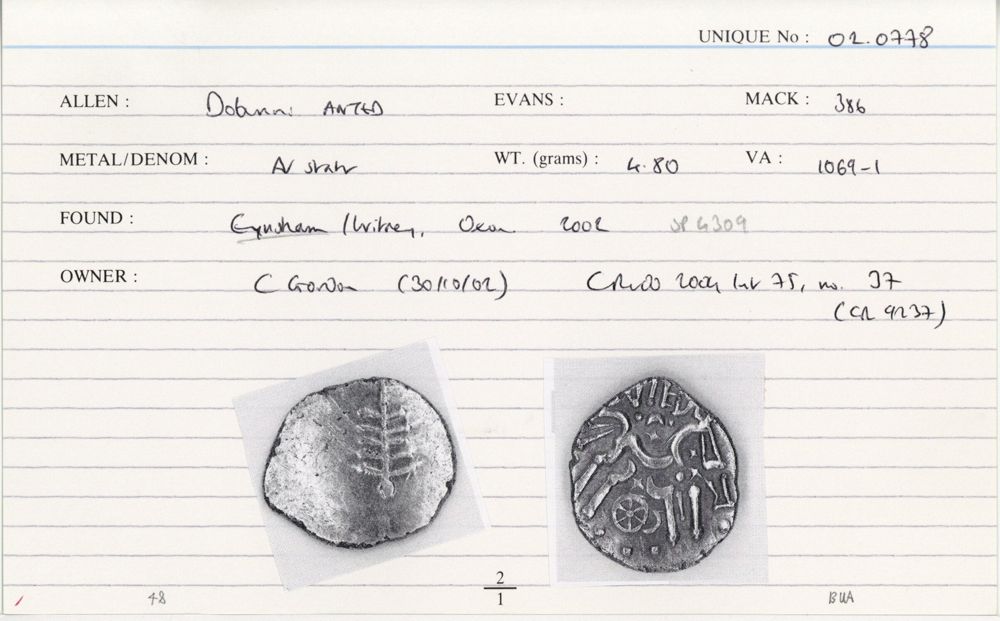 UNIQUE No : 02.0778
ALLEN : Dobunni ANTED EVANS : MACK : 386
METAL/DENOM : AV stater WT. (grams) : 4.80 VA : 1069-1
FOUND : Eynsham / Witney, Oxon 2002 SP 4309
OWNER : C Gordon (30/10/02) 2004 75, no. 37
(CR 9237)
2
1
48 BUA